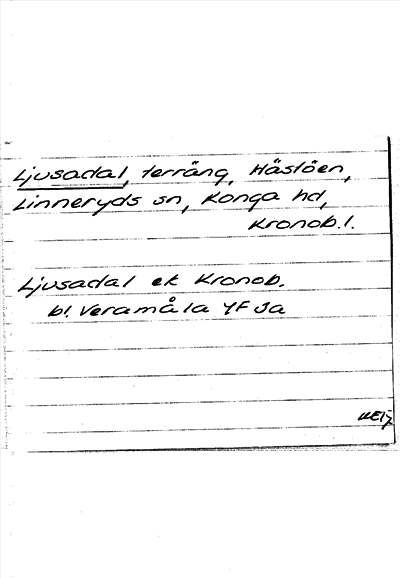 Ljusadal, terräng, Hästöen,
Linneryds sn, Konga hd,
Kronob.l.
Ljusadal ek Kronob.
bl. Veramåla YF 3a